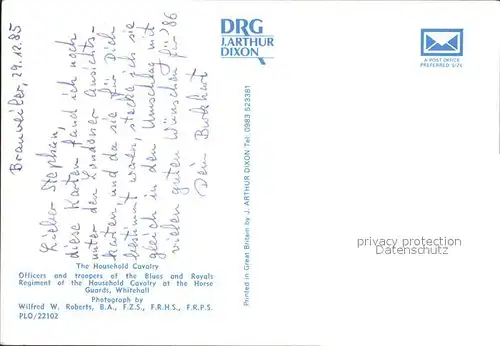 Brauweiler, 29.12.85
Lieber Stephan,
diese Karten fand ich noch
unter den Londoner Ansichts-
karten, und da sie für Dich
bestimmt waren, stecke ich sie
gleich in den Umschlag mit
vielen guten Wünschen für '86
Dein Burkhart
The Household Cavalry
Officers and troopers of the Blues and Royals
Regiment of the Household Cavalry at the Horse
Guards, Whitehall
Photograph by
Wilfred W. Roberts, B.A., F.Z.S., F.R.H.S., F.R.P.S.
PLO/22102
DRG
J.ARTHUR
DIXON
Printed in Great Britain by J. ARTHUR DIXON Tel. 0983 523381
A POST OFFICE
PREFERRED SIZE
privacy protection
Datenschutz